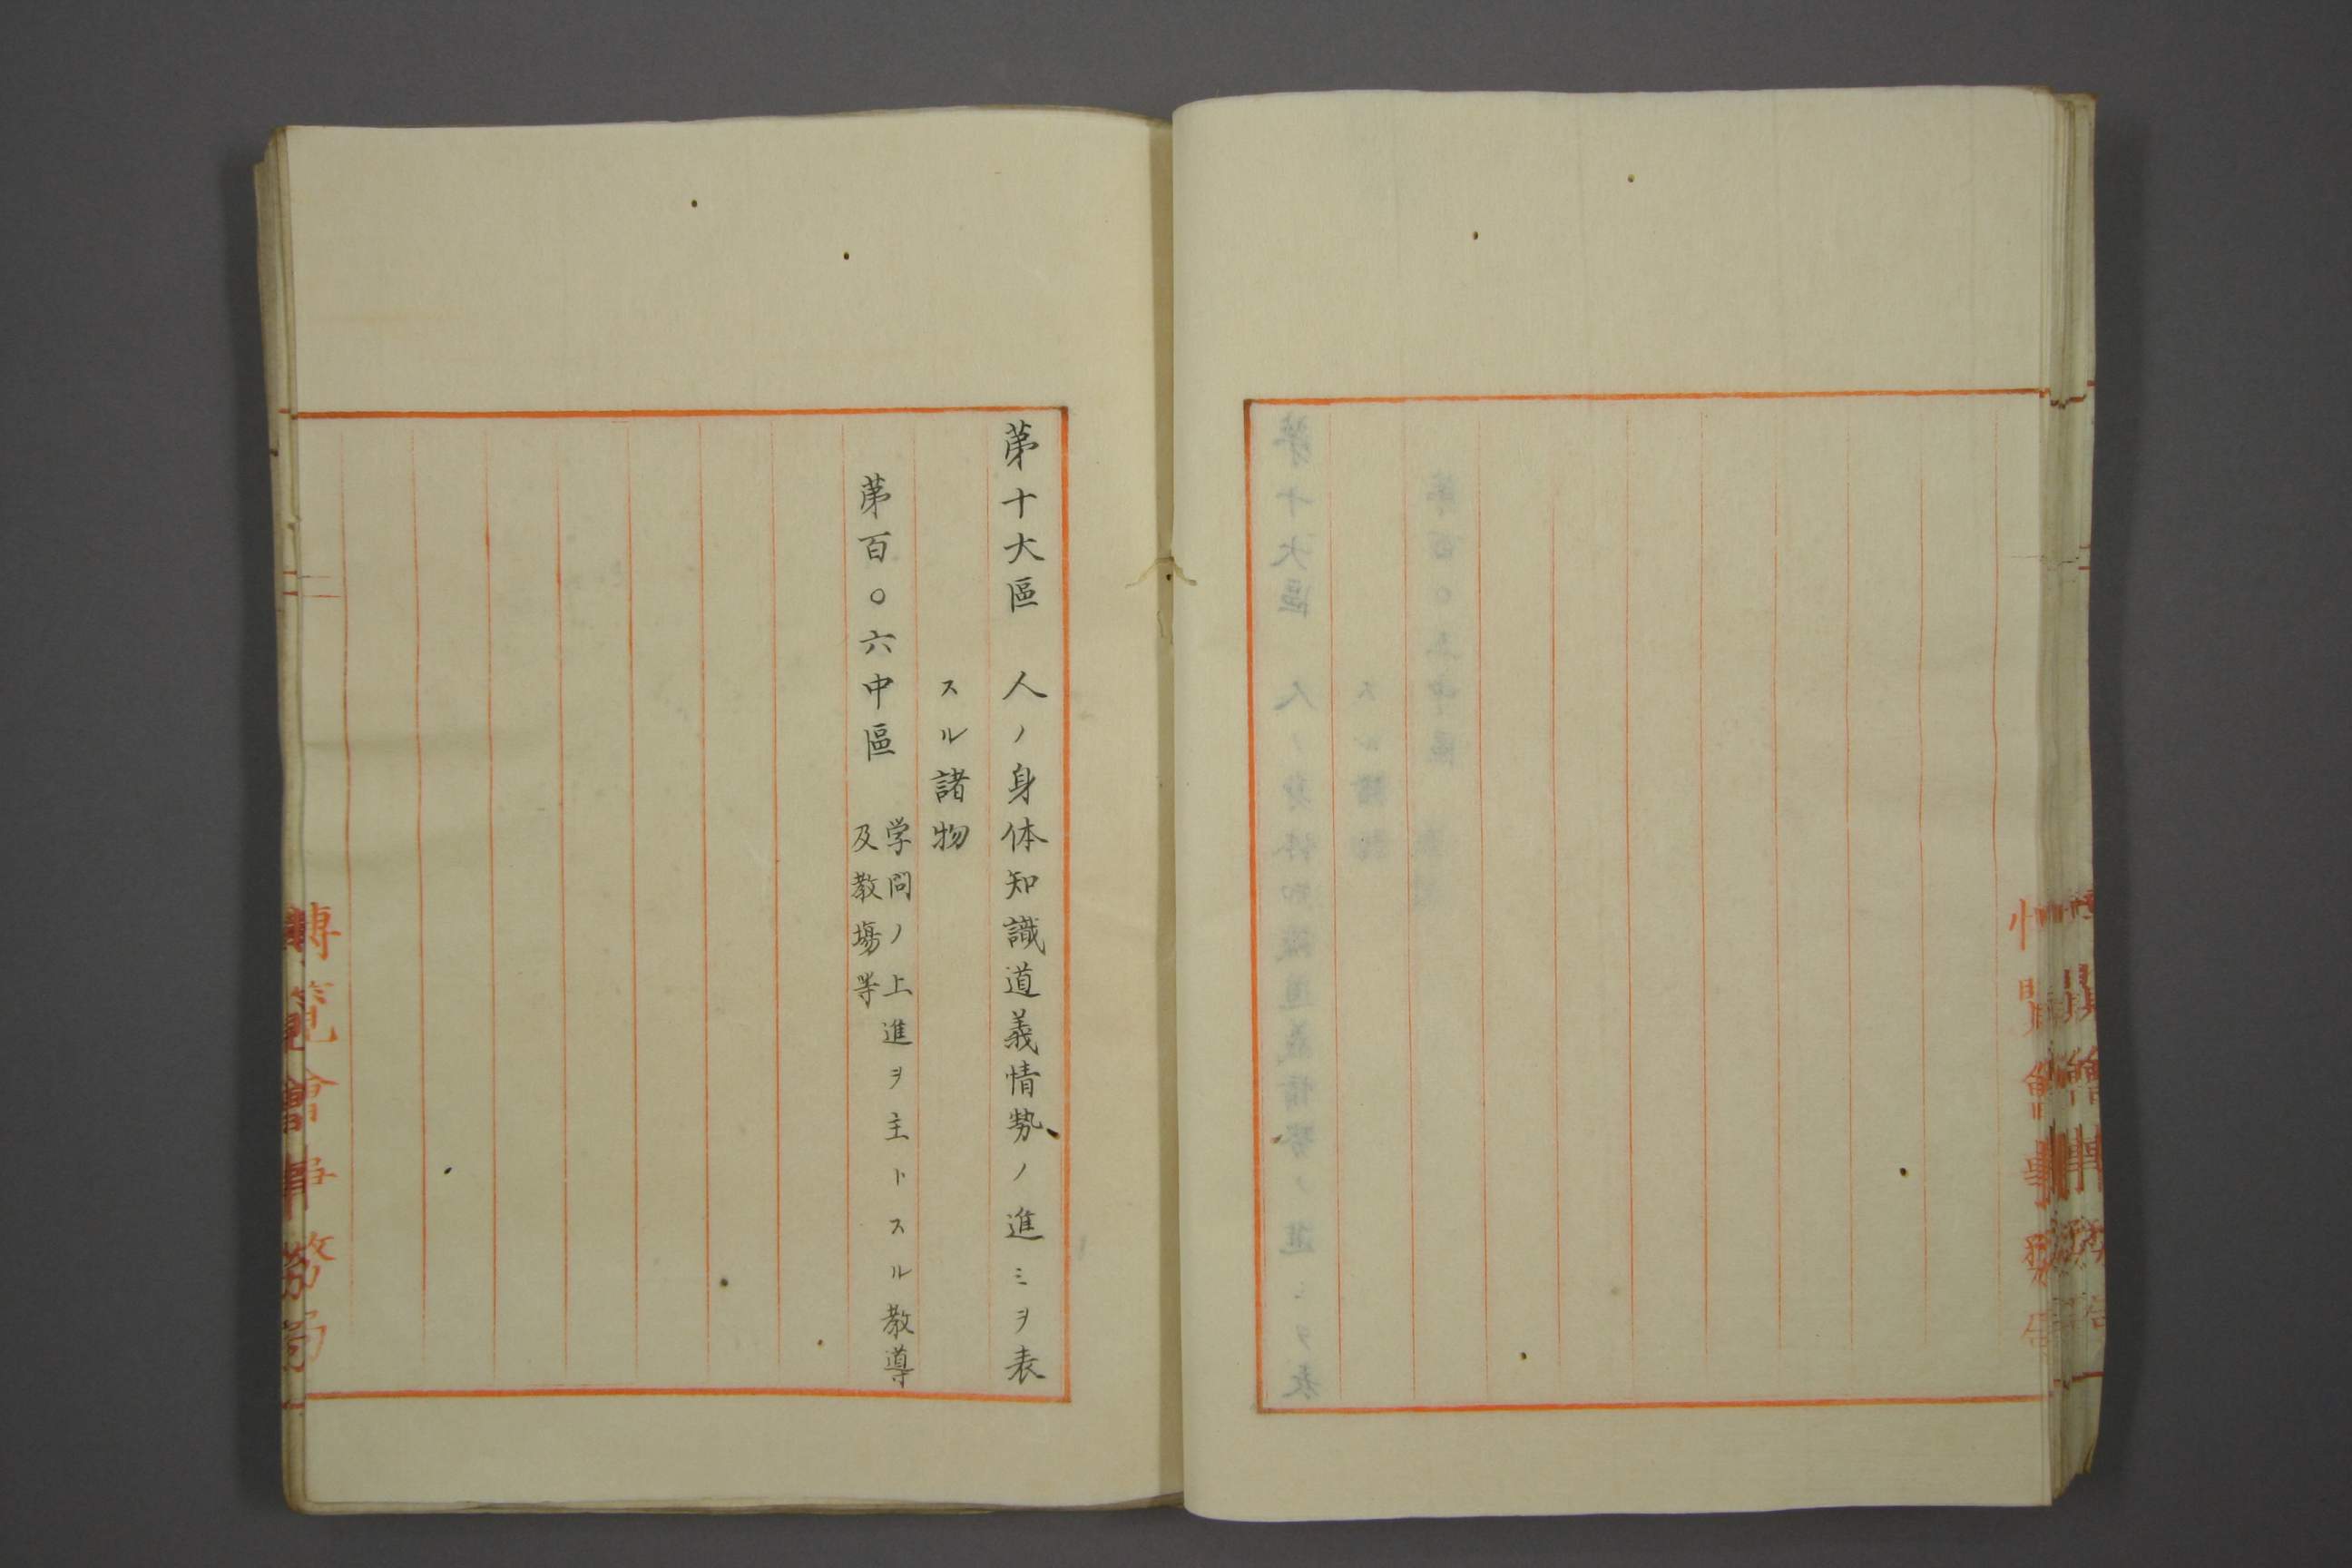 第十大區　人ノ身体知識道義情勢ノ進ミヲ表
スル諸物
第百〇六中區　学問ノ上進ヲ主トスル教導
及教場等
博覧會事務局